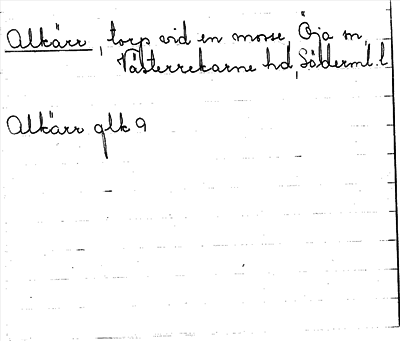 Alkärr, torp vid en mosse, Öja sn,
Västerrekarne hd, Söderml. l.
Alkärr glk 9